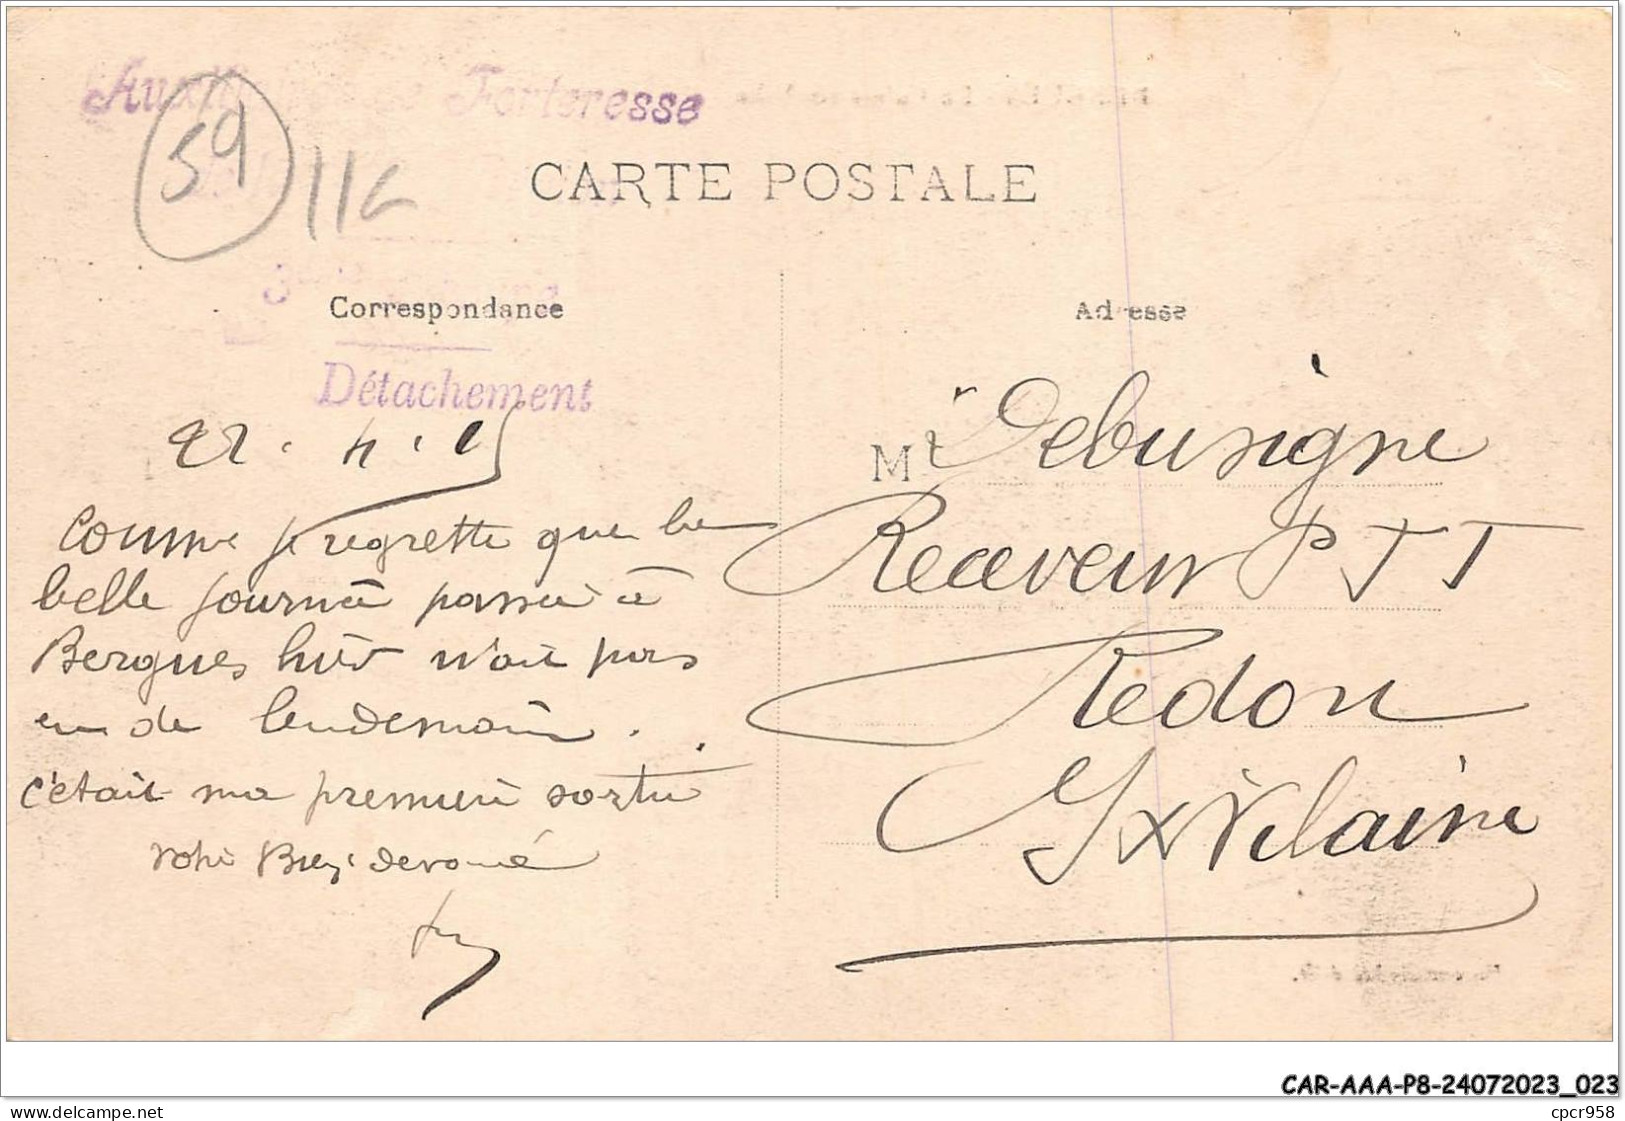 Auxiliaires de Forteresse
59
116
CARTE POSTALE
Correspondance
Adresse
Détachement
22.4.15
Comme je regrette que la
belle journée passée à
Bergues hier n'ait pas
eu de lendemain.
C'était ma première sortie
votre Bien dévoué
Mr Debusigne
Receveur PTT
Redon
I x Vilaine
CAR-AAA-P8-24072023_023
www.delcampe.net
cpcr958